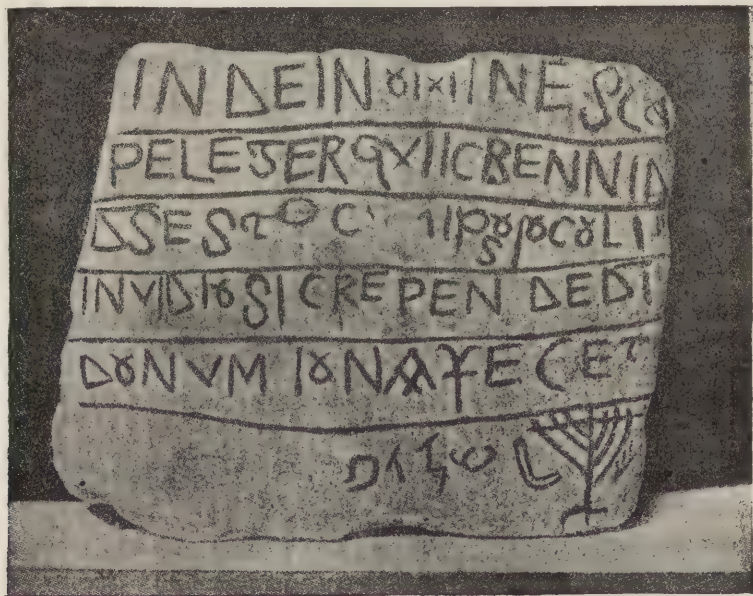 IN DEI NOMINE SCO
PELEGER QVI IC BENNID
DS ESTO C IPSO OCOLI
INVIDIOSI CREPEN DE DI
DONVM IONA FECET
שלום